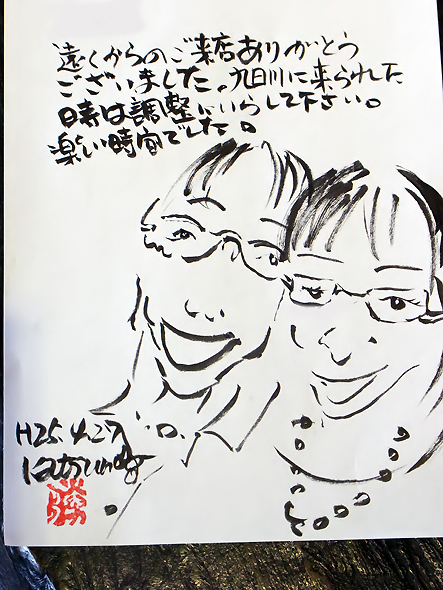 遠くからのご来店ありがとう
ございました。旭川に来られた
時は調整にいらして下さい。
楽しい時間でした。
H25.4.27